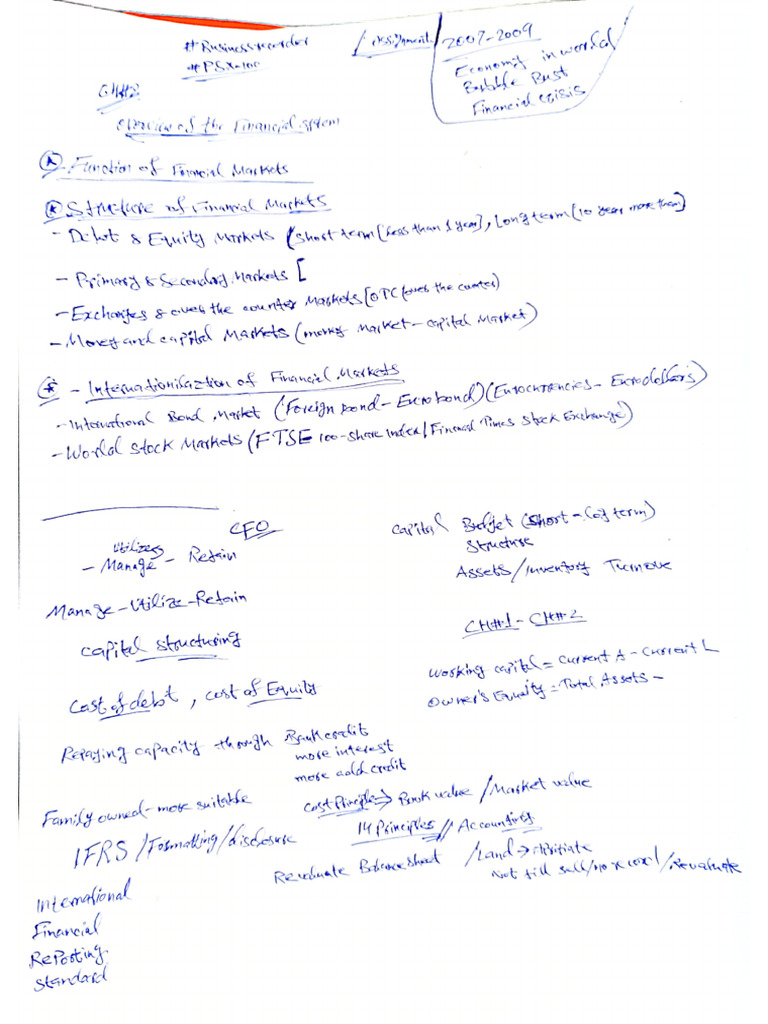 #Businessrecorder
#PSX-100
Assignment
2007-2009
Economy in world
Bubble Bust
Financial crisis
CH#2
Overview of the Financial system
Function of Financial Markets
Structure of Financial Markets
- Debt & Equity Markets (short term [Less than 1 year], Long term (10 year more than]
- Primary & Secondary Markets [
- Exchanges & over the counter Markets [OPC (over the counter)
- Money and capital Markets (money Market - capital Market)
- Internationilization of Financial Markets
- International Bond Market (Foreign bond - Eurobond) (Eurocurrencies - Eurodollars)
- World Stock Markets (FTSE 100-share index / Financial Times Stock Exchange)
CFO
utilizes
- Manage - Retain
Manage - Utilize - Retain
capital structuring
Cost of debt, cost of Equity
Repaying capacity though Bank credit
more interest
more add credit
Family owned - more suitable
IFRS / Formatting / disclosure
International
Financial
Reporting
Standard
Capital Budget (Short - Long term)
Structure
Assets / Inventory Turnove
CH#1 - CH#2
Working capital = Current A - Current L
Owner's Equity = Total Assets -
Cost Principle → Book value / Market value
14 Principles // Accounting
Revaluate Balance sheet / Land →
Not till sell / no record / Revaluate